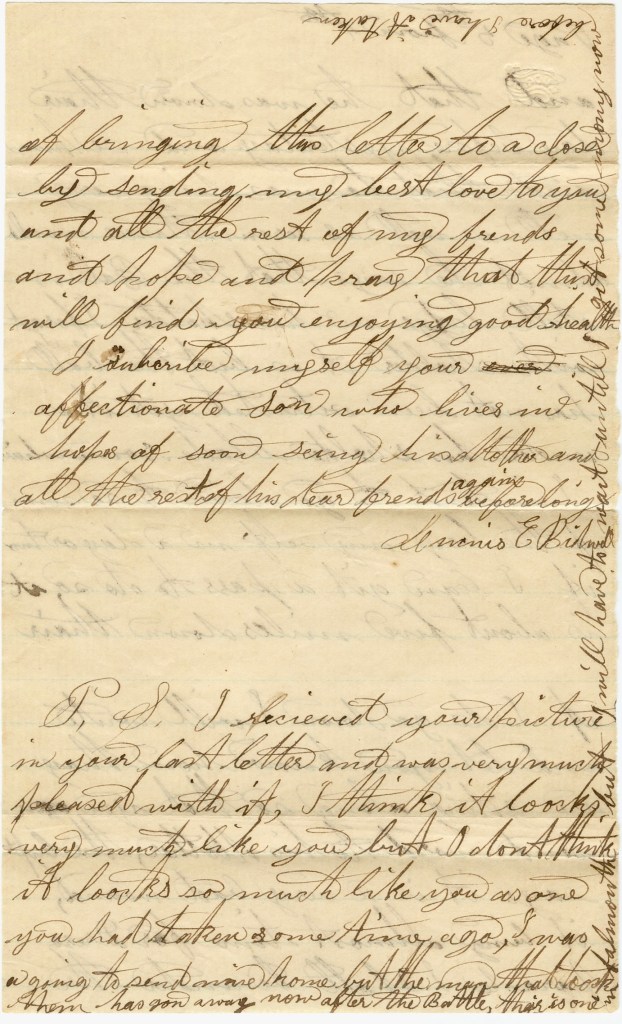 of bringing this letter to a close
by sending my best love to you
and all the rest of my frends
and hope and pray that this
will find you enjoying good health
I subcribe myself your ever
affectionate son who lives in
hopes of soon seing his Mother and
all the rest of his dear frends againe before long
E
P. S. I recieved your picture
in your last letter and was very much
pleased with it, I think it loocks
very much like you but I dont think
it loocks so much like you as one
you had taken some time ago, I was
a going to send mine home but the man that took
them has gon away now after the Battle, thair is one
in Falmouth but I will have to wait untill I get some mony now
before I have it taken